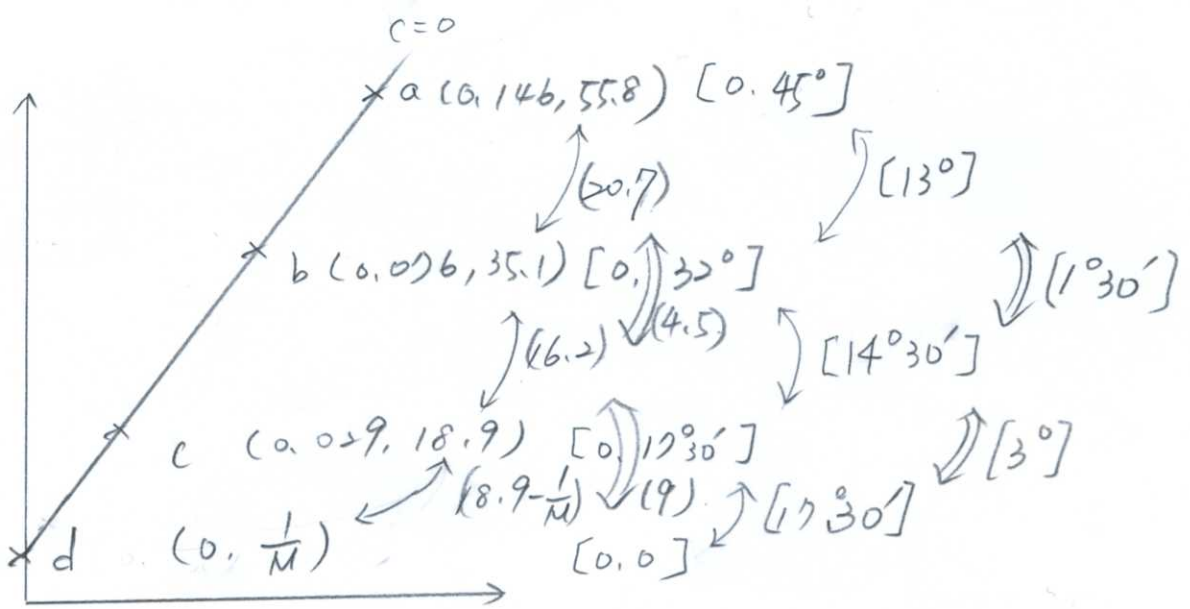 c=0
a (0.146, 55.8) [0. 45°]
(20.7) [13°]
b (0.076, 35.1) [0, 32°] [1°30′]
(16.2) (4.5) [14°30′]
c (0.029, 18.9) [0, 17°30′] [3°]
(18.9-1/M) (9) [17°30′]
d (0. 1/M) [0.0]